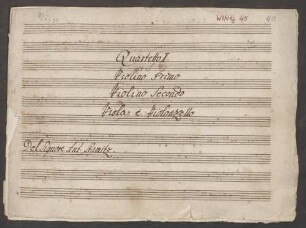 WINc 45
Quartetto
Violino Primo
Violino Secondo
Viola, e Violonzello
Del Signore Ant.